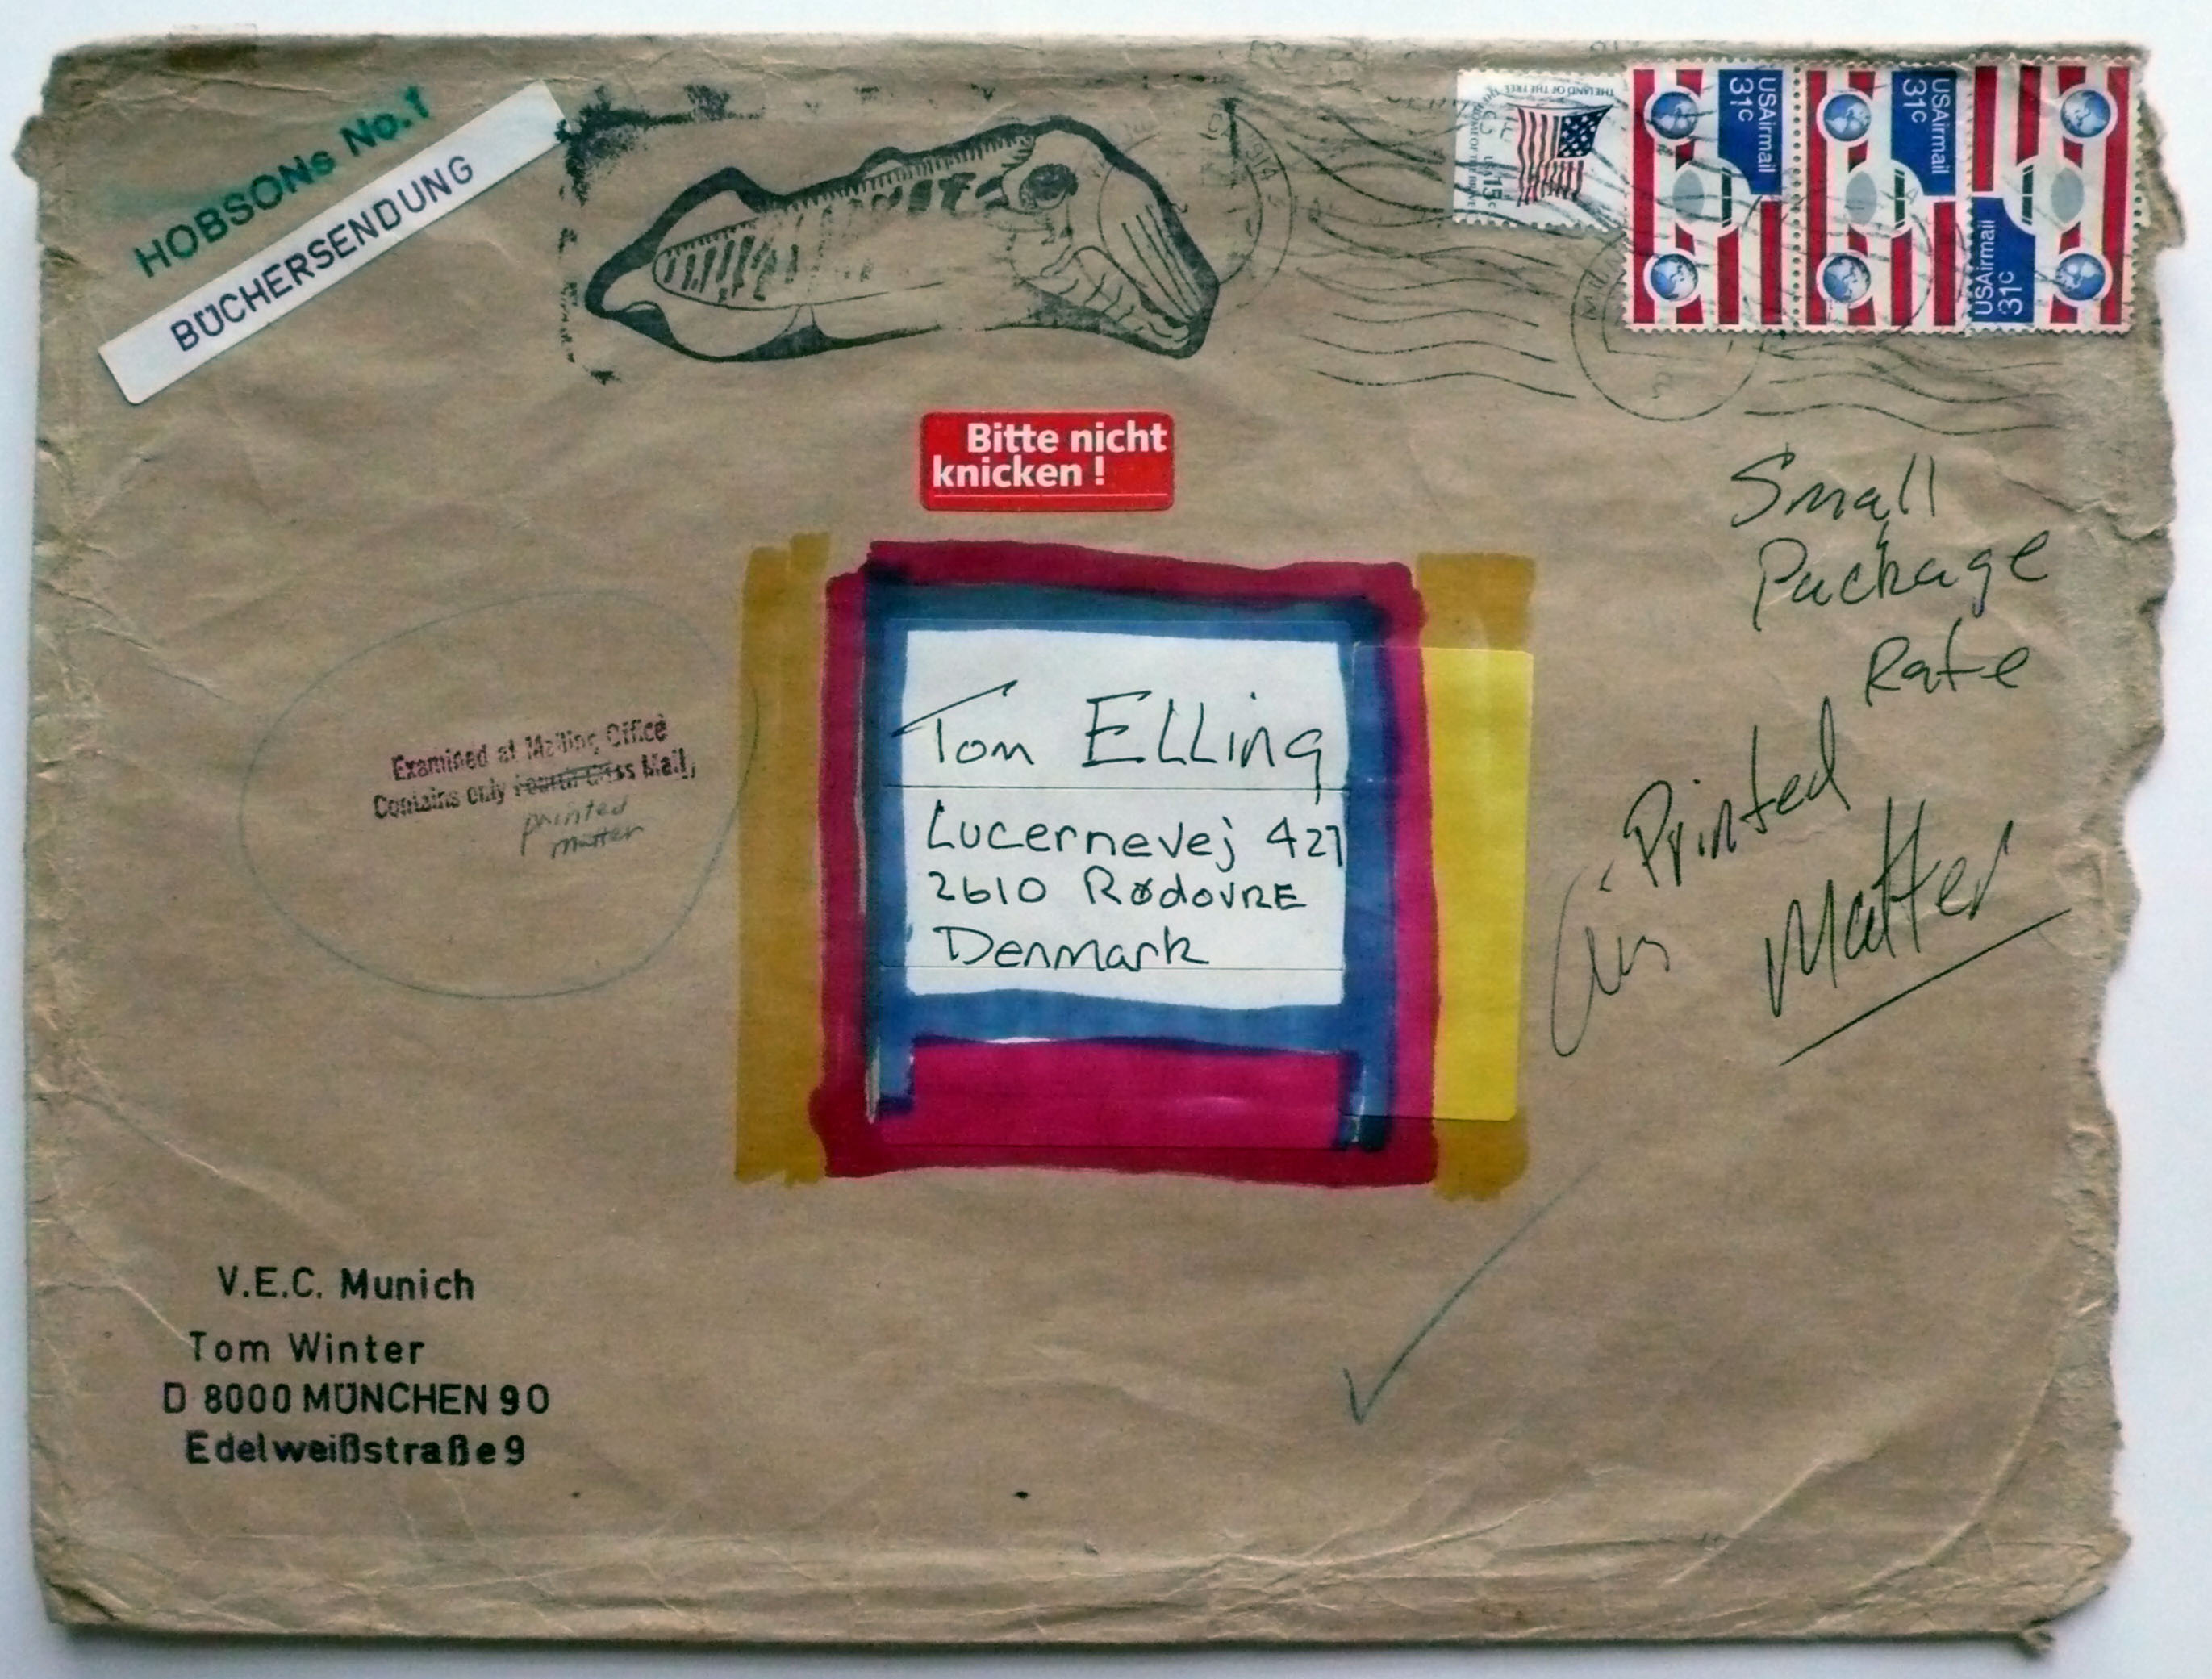 HOBSONs No.1
BÜCHERSENDUNG
THE LAND OF THE FREE
USAirmail
31c
USAirmail
31c
USAirmail
31c
Bitte nicht
knicken !
Small
Package
Rate
Printed
Matter
Air
Examined at Mailing Office
Contains only Fourth Class Mail,
printed
matter
Tom ELLing
Lucernevej 427
2610 RødovRE
Denmark
V.E.C. Munich
Tom Winter
D 8000 MÜNCHEN 90
Edelweißstraße 9